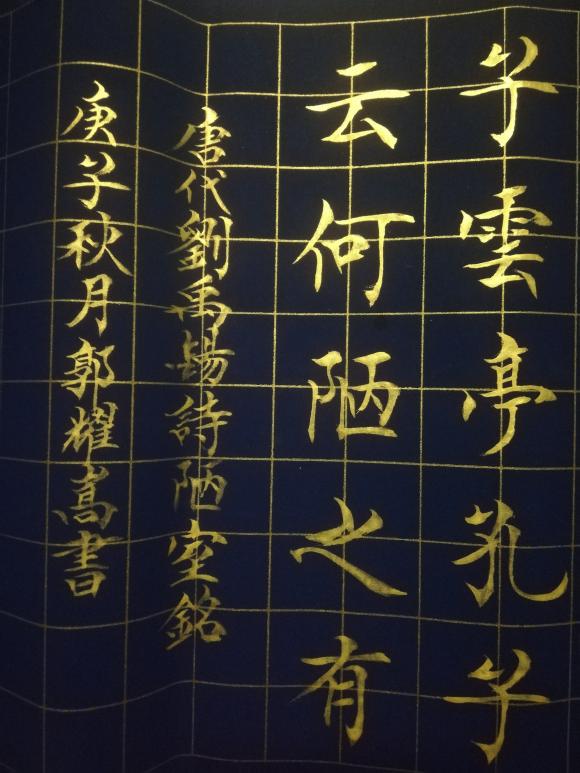 子雲亭孔子
云何陋之有
唐代劉禹錫詩陋室銘
庚子秋月郭耀嵩書